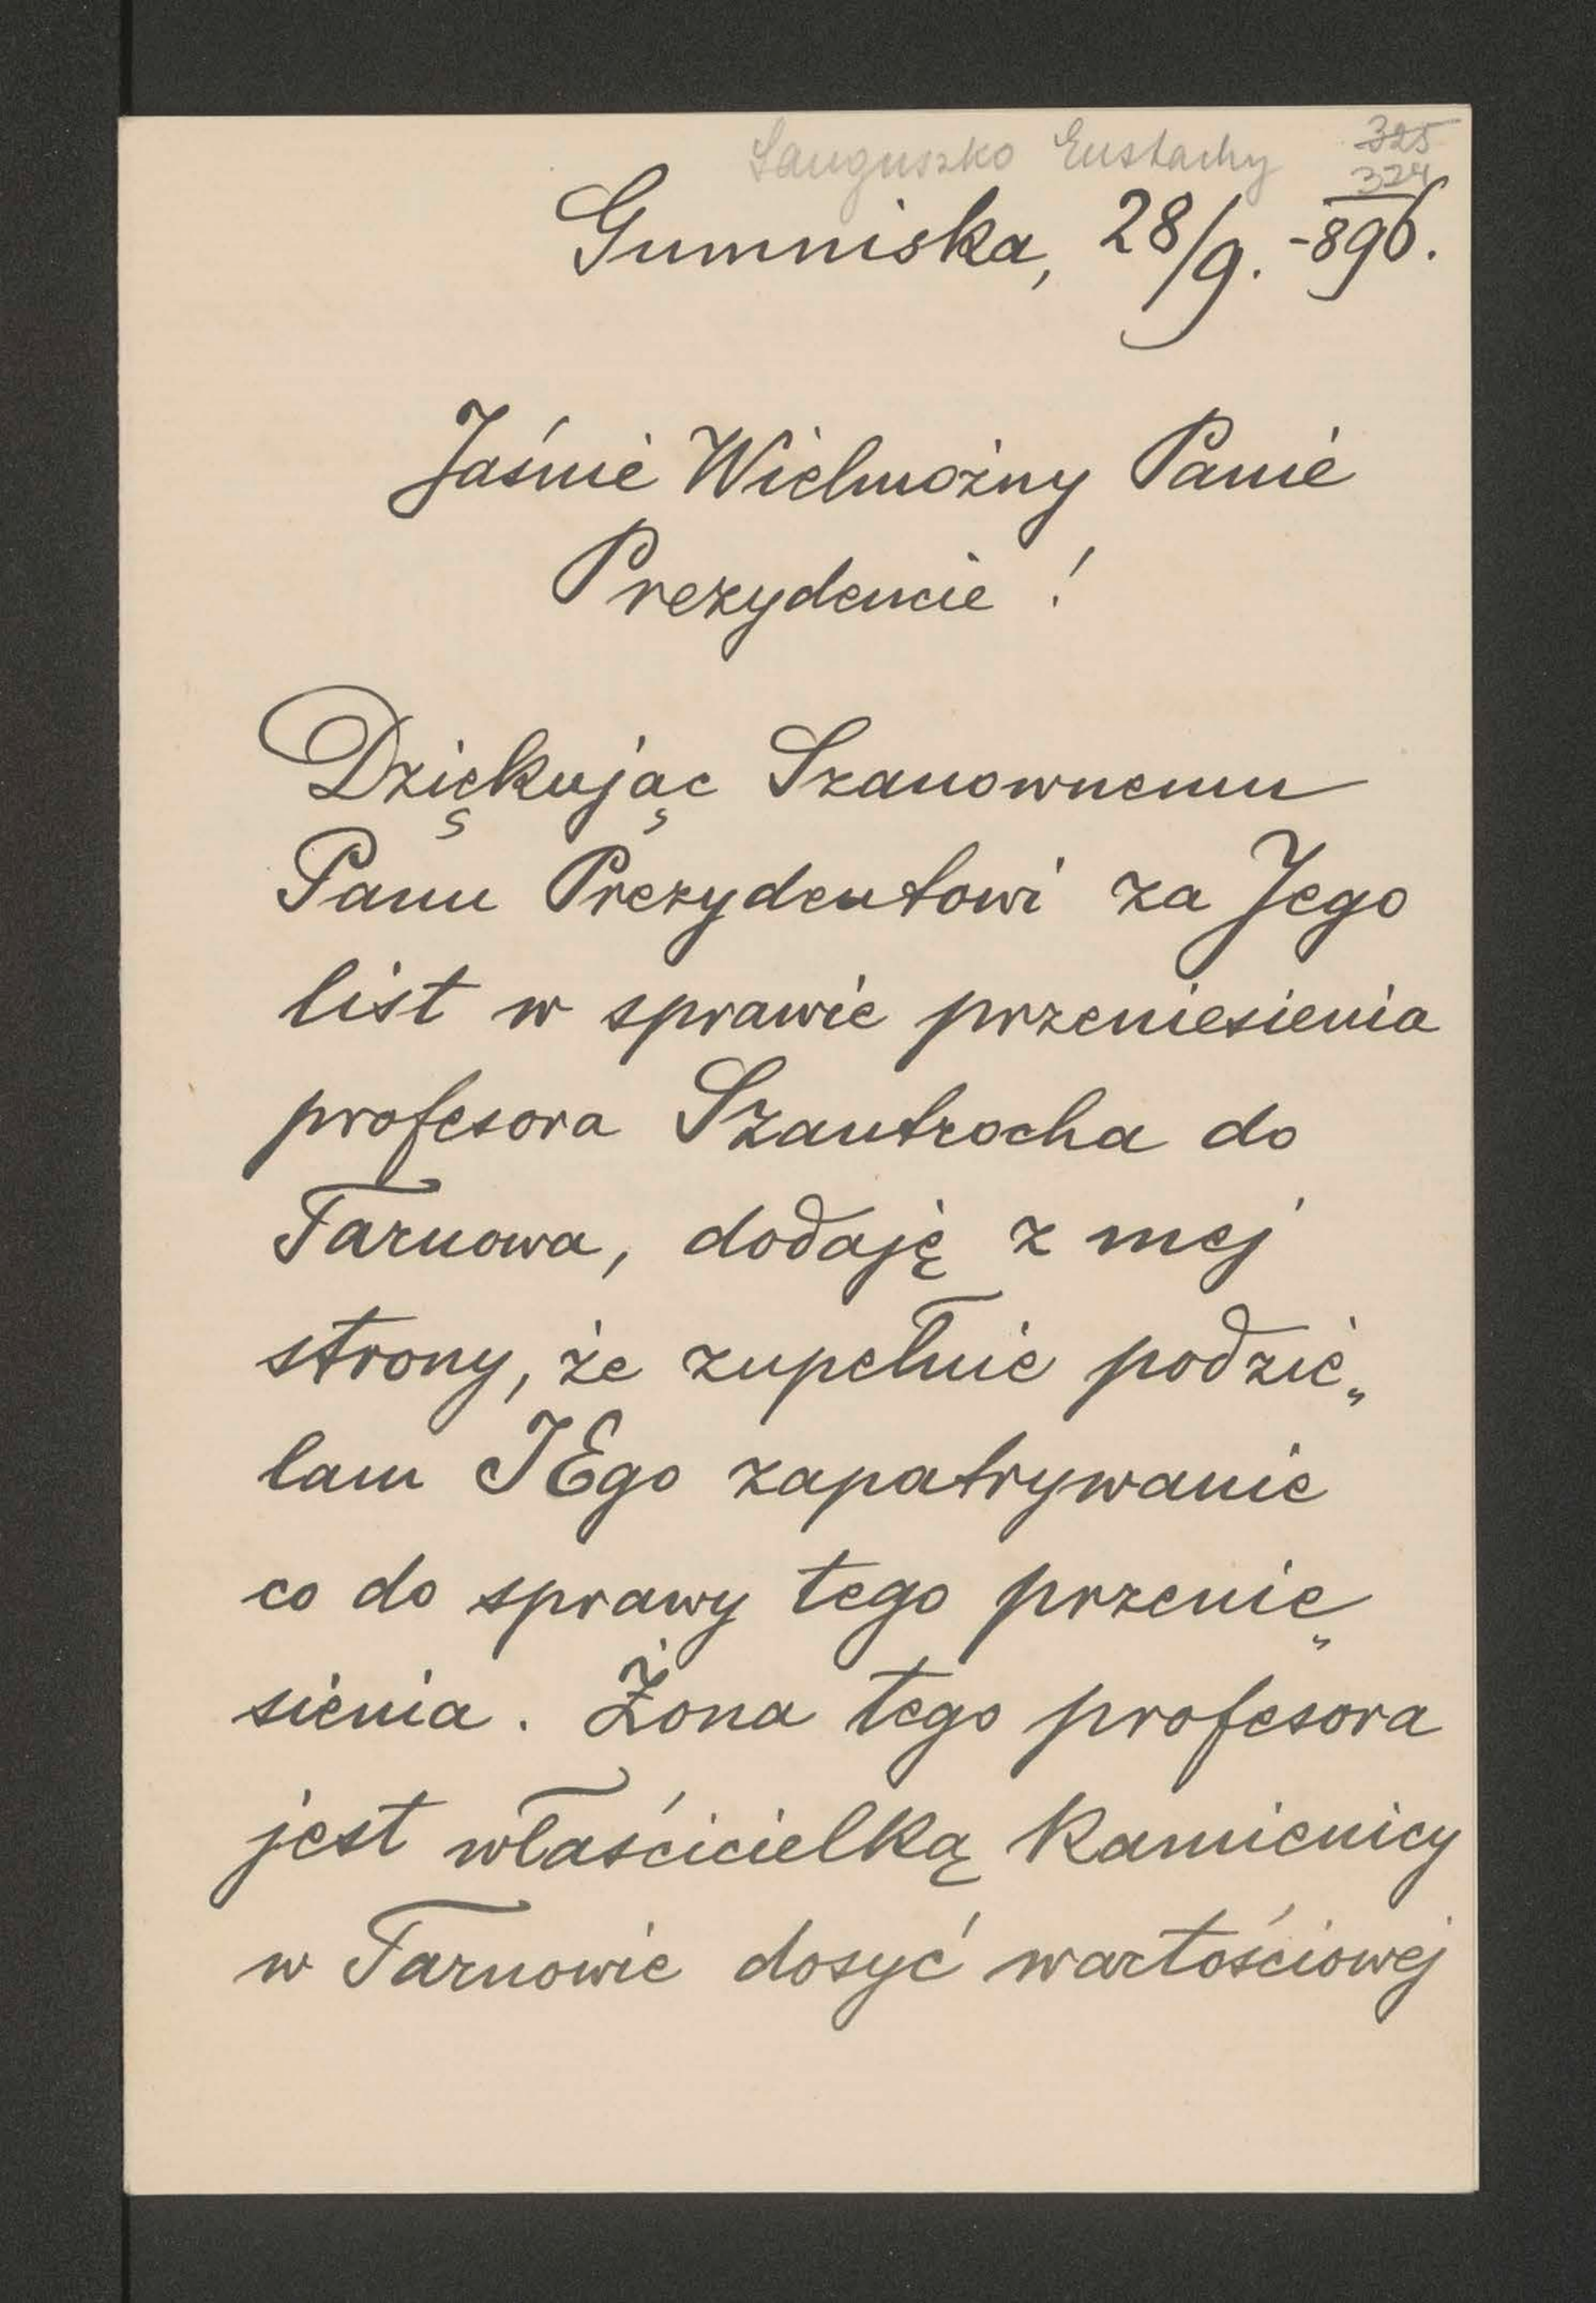 Sanguszko Eustachy 325
324
Gumniska, 28/9. -896.
Jaśnie Wielmożny Panie
Prezydencie !
Dziękując Szanownemu
Panu Prezydentowi za Jego
list w sprawie przeniesienia
profesora Szantrocha do
Tarnowa, dodaję z mej
strony, że zupełnie podzie„
lam JEgo zapatrywanie
co do sprawy tego przenie„
sienia. Żona tego profesora
jest właścicielką kamienicy
w Tarnowie dosyć wartościowej